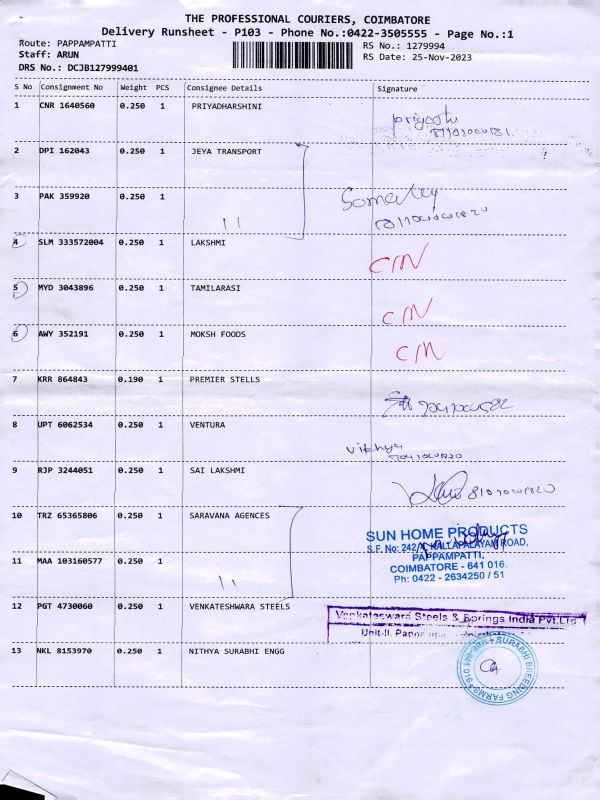 THE PROFESSIONAL COURIERS, COIMBATORE
Delivery Runsheet - P103 - Phone No.:0422-3505555 - Page No.:1
Route: PAPPAMPATTI
RS No.: 1279994
Staff: ARUN
RS Date: 25-Nov-2023
DRS No.: DCJB127999401
S No Consignment No Weight PCS Consignee Details Signature
1 CNR 1640560 0.250 1 PRIYADHARSHINI
2 DPI 162043 0.250 1 JEYA TRANSPORT
3 PAK 359920 0.250 1 11
4 SLM 333572004 0.250 1 LAKSHMI C/N
5 MYD 3043896 0.250 1 TAMILARASI C/N
6 AWY 352191 0.250 1 MOKSH FOODS C/N
7 KRR 864843 0.190 1 PREMIER STELLS
8 UPT 6062534 0.250 1 VENTURA
vikhya
9 RJP 3244051 0.250 1 SAI LAKSHMI
10 TRZ 65365806 0.250 1 SARAVANA AGENCES
SUN HOME PRODUCTS
S.F. No: 242/ KALLAPALAYAM ROAD,
PAPPAMPATTI,
11 MAA 103160577 0.250 1 11
COIMBATORE - 641 016.
Ph: 0422 - 2634250 / 51
12 PGT 4730060 0.250 1 VENKATESHWARA STEELS
Venkateswara Steels & Springs India Pvt.Ltd
Unit-II,
13 NKL 8153970 0.250 1 NITHYA SURABHI ENGG
SURABHI BREEDING FARMS